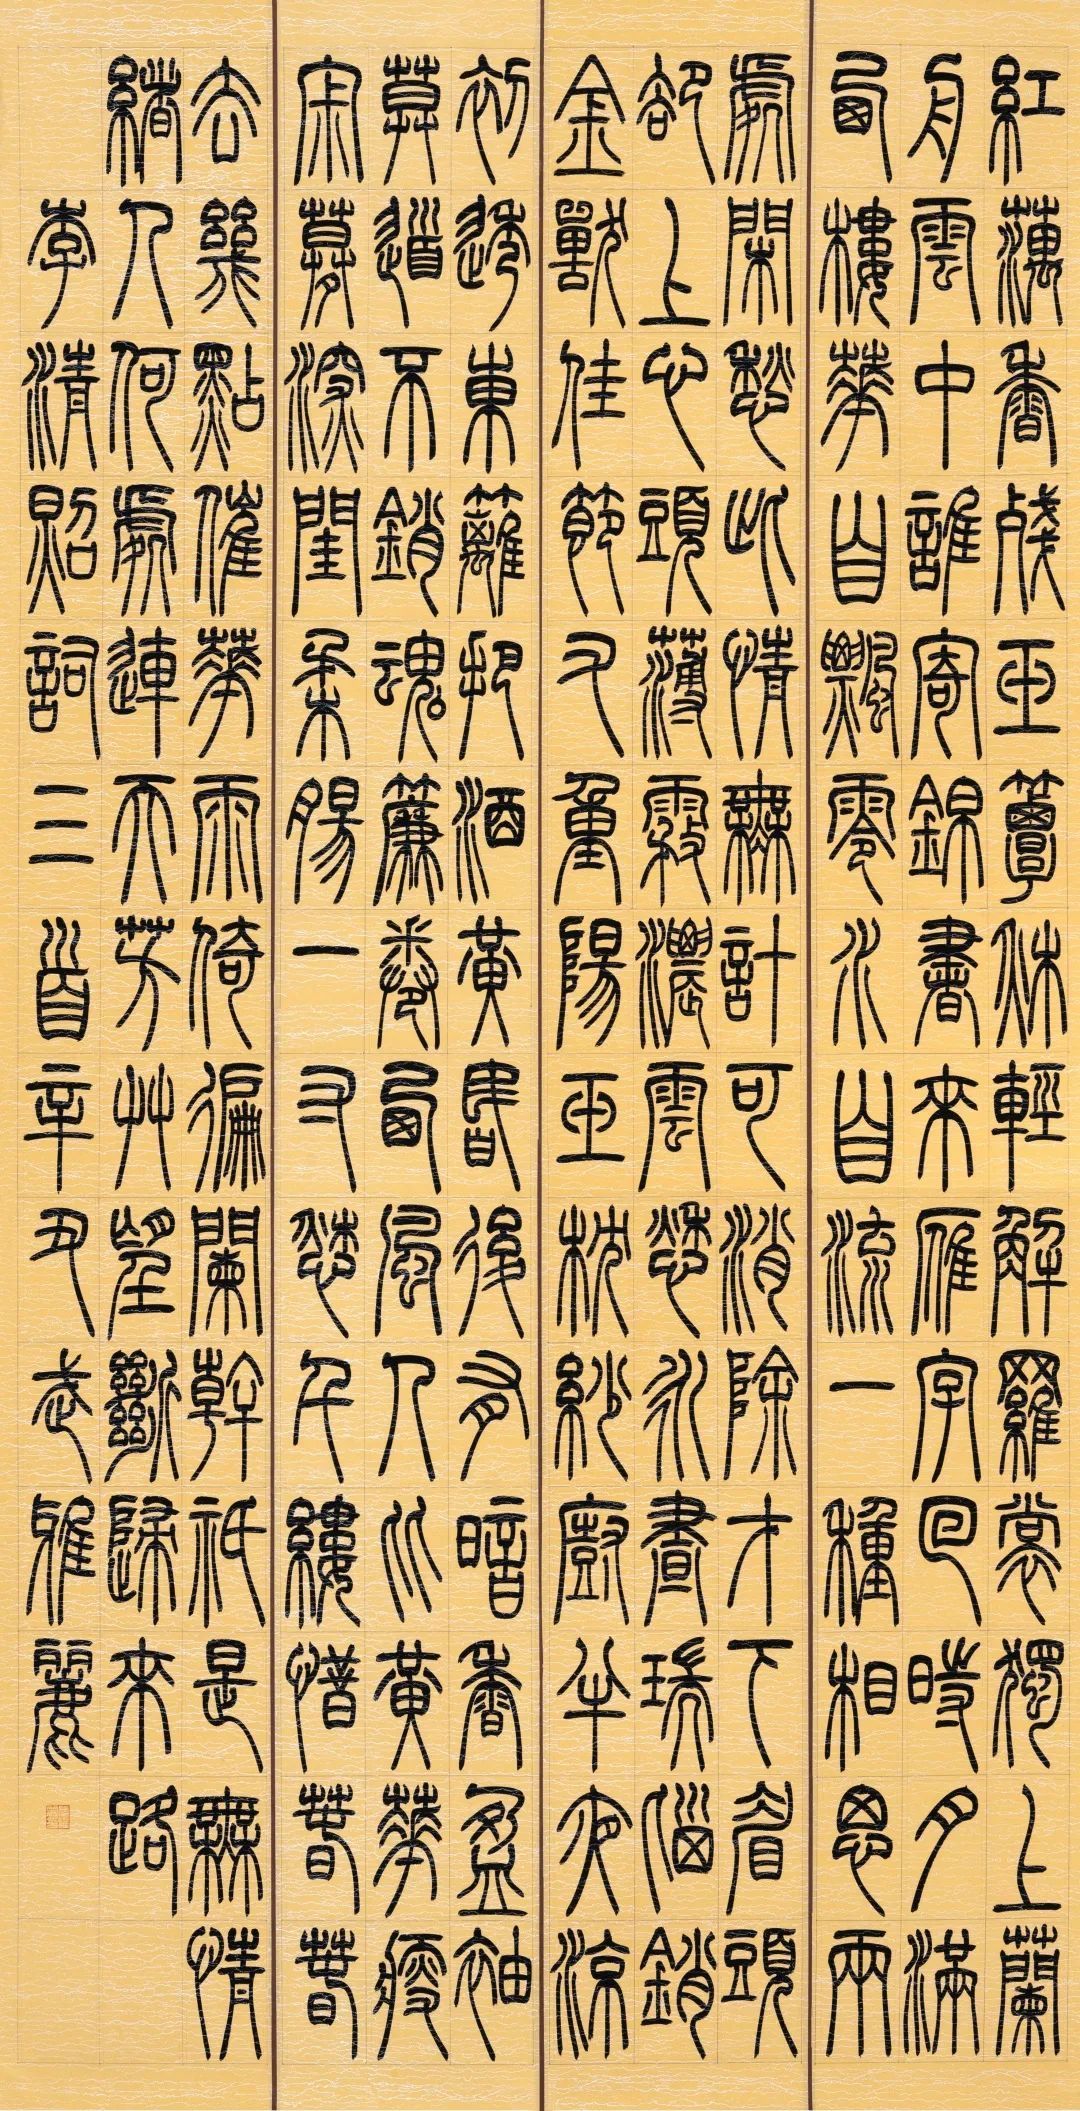 紅藕香殘玉簟秋輕解羅裳獨上蘭
舟雲中誰寄錦書來雁字回時月滿
西樓華自飄零水自流一種相思兩
處閑愁此情無計可消除才下眉頭
卻上心頭薄霧濃雲愁永晝瑞腦銷
金獸佳節又重陽玉枕紗廚半夜涼
初透東籬把酒黃昏後有暗香盈袖
莫道不銷魂簾卷西風人比黃華瘦
寂寞深閨柔腸一寸愁千縷惜春春
去幾點催華雨倚徧闌幹祇是無情
緒人何處連天芳艸望斷歸來路
李清照詞三首辛丑武雅麗